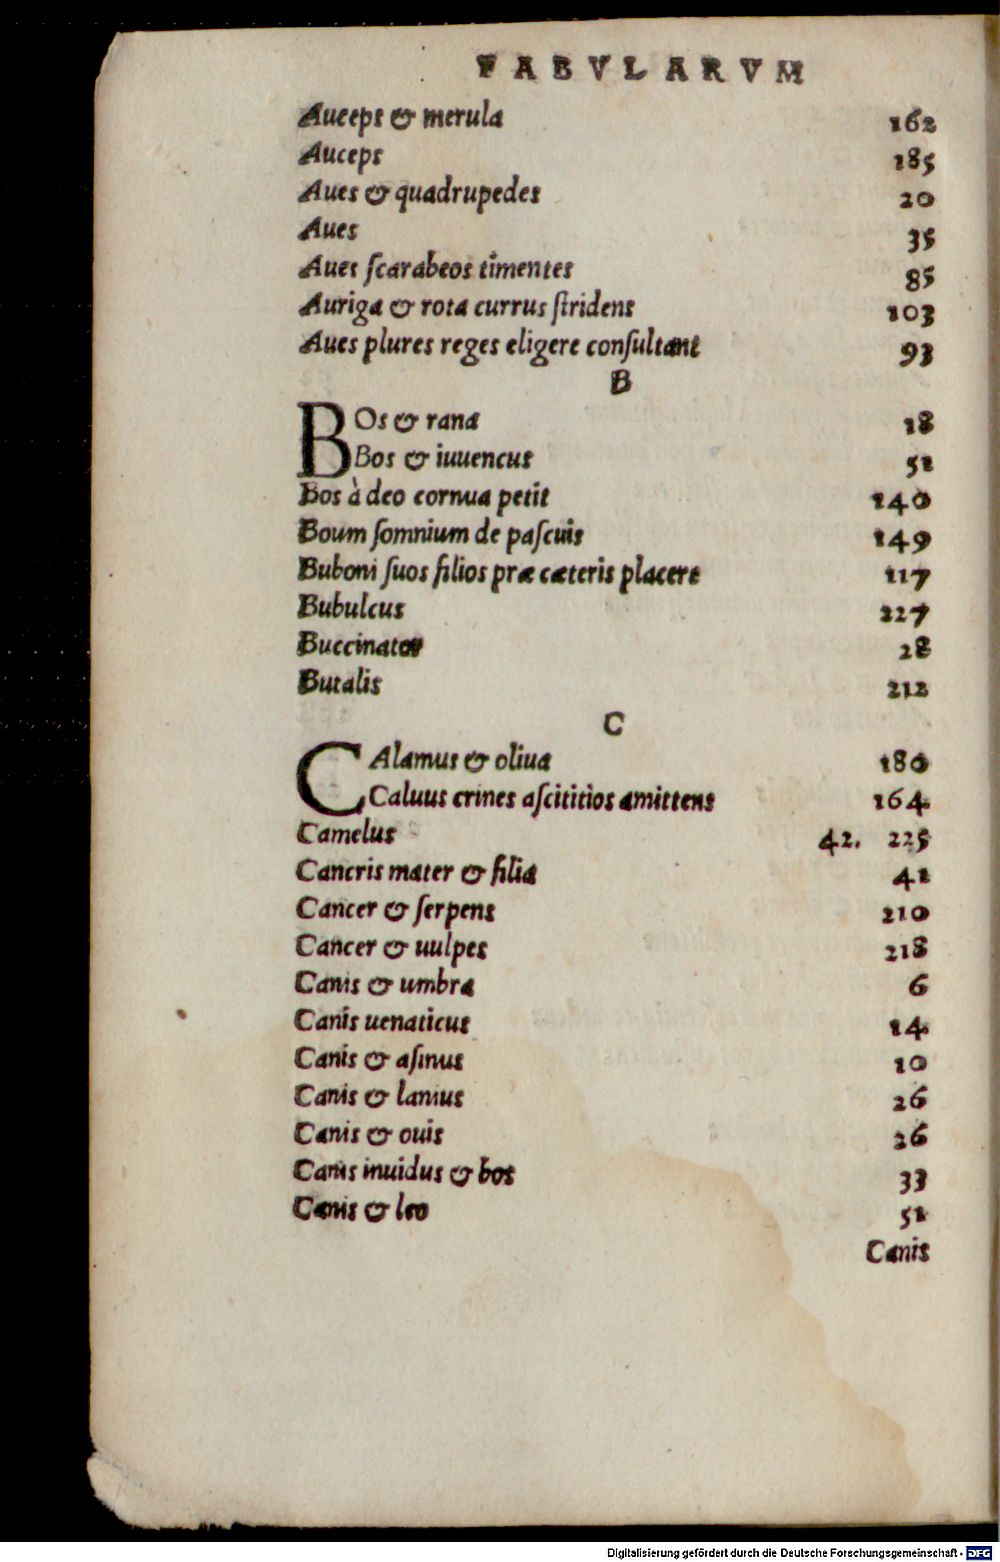 FABVLARVM
Auceps & merula 162
Auceps 185
Aues & quadrupedes 20
Aues 35
Aues ſcarabeos timentes 85
Auriga & rota currus ſtridens 103
Aues plures reges eligere conſultant 93
B
BOs & rana 18
Bos & iuuencus 51
Bos à deo cornua petit 140
Boum ſomnium de paſcuis 149
Buboni ſuos filios præ cæteris placere 117
Bubulcus 227
Buccinator 28
Butalis 212
C
CAlamus & oliua 180
Caluus crines aſcititios amittens 164
Camelus 42. 225
Cancris mater & filia 41
Cancer & ſerpens 210
Cancer & uulpes 218
Canis & umbra 6
Canis uenaticus 14
Canis & aſinus 10
Canis & lanius 26
Canis & ouis 26
Canis inuidus & bos 33
Canis & leo 51
Canis
Digitalisierung gefördert durch die Deutsche Forschungsgemeinschaft - DFG